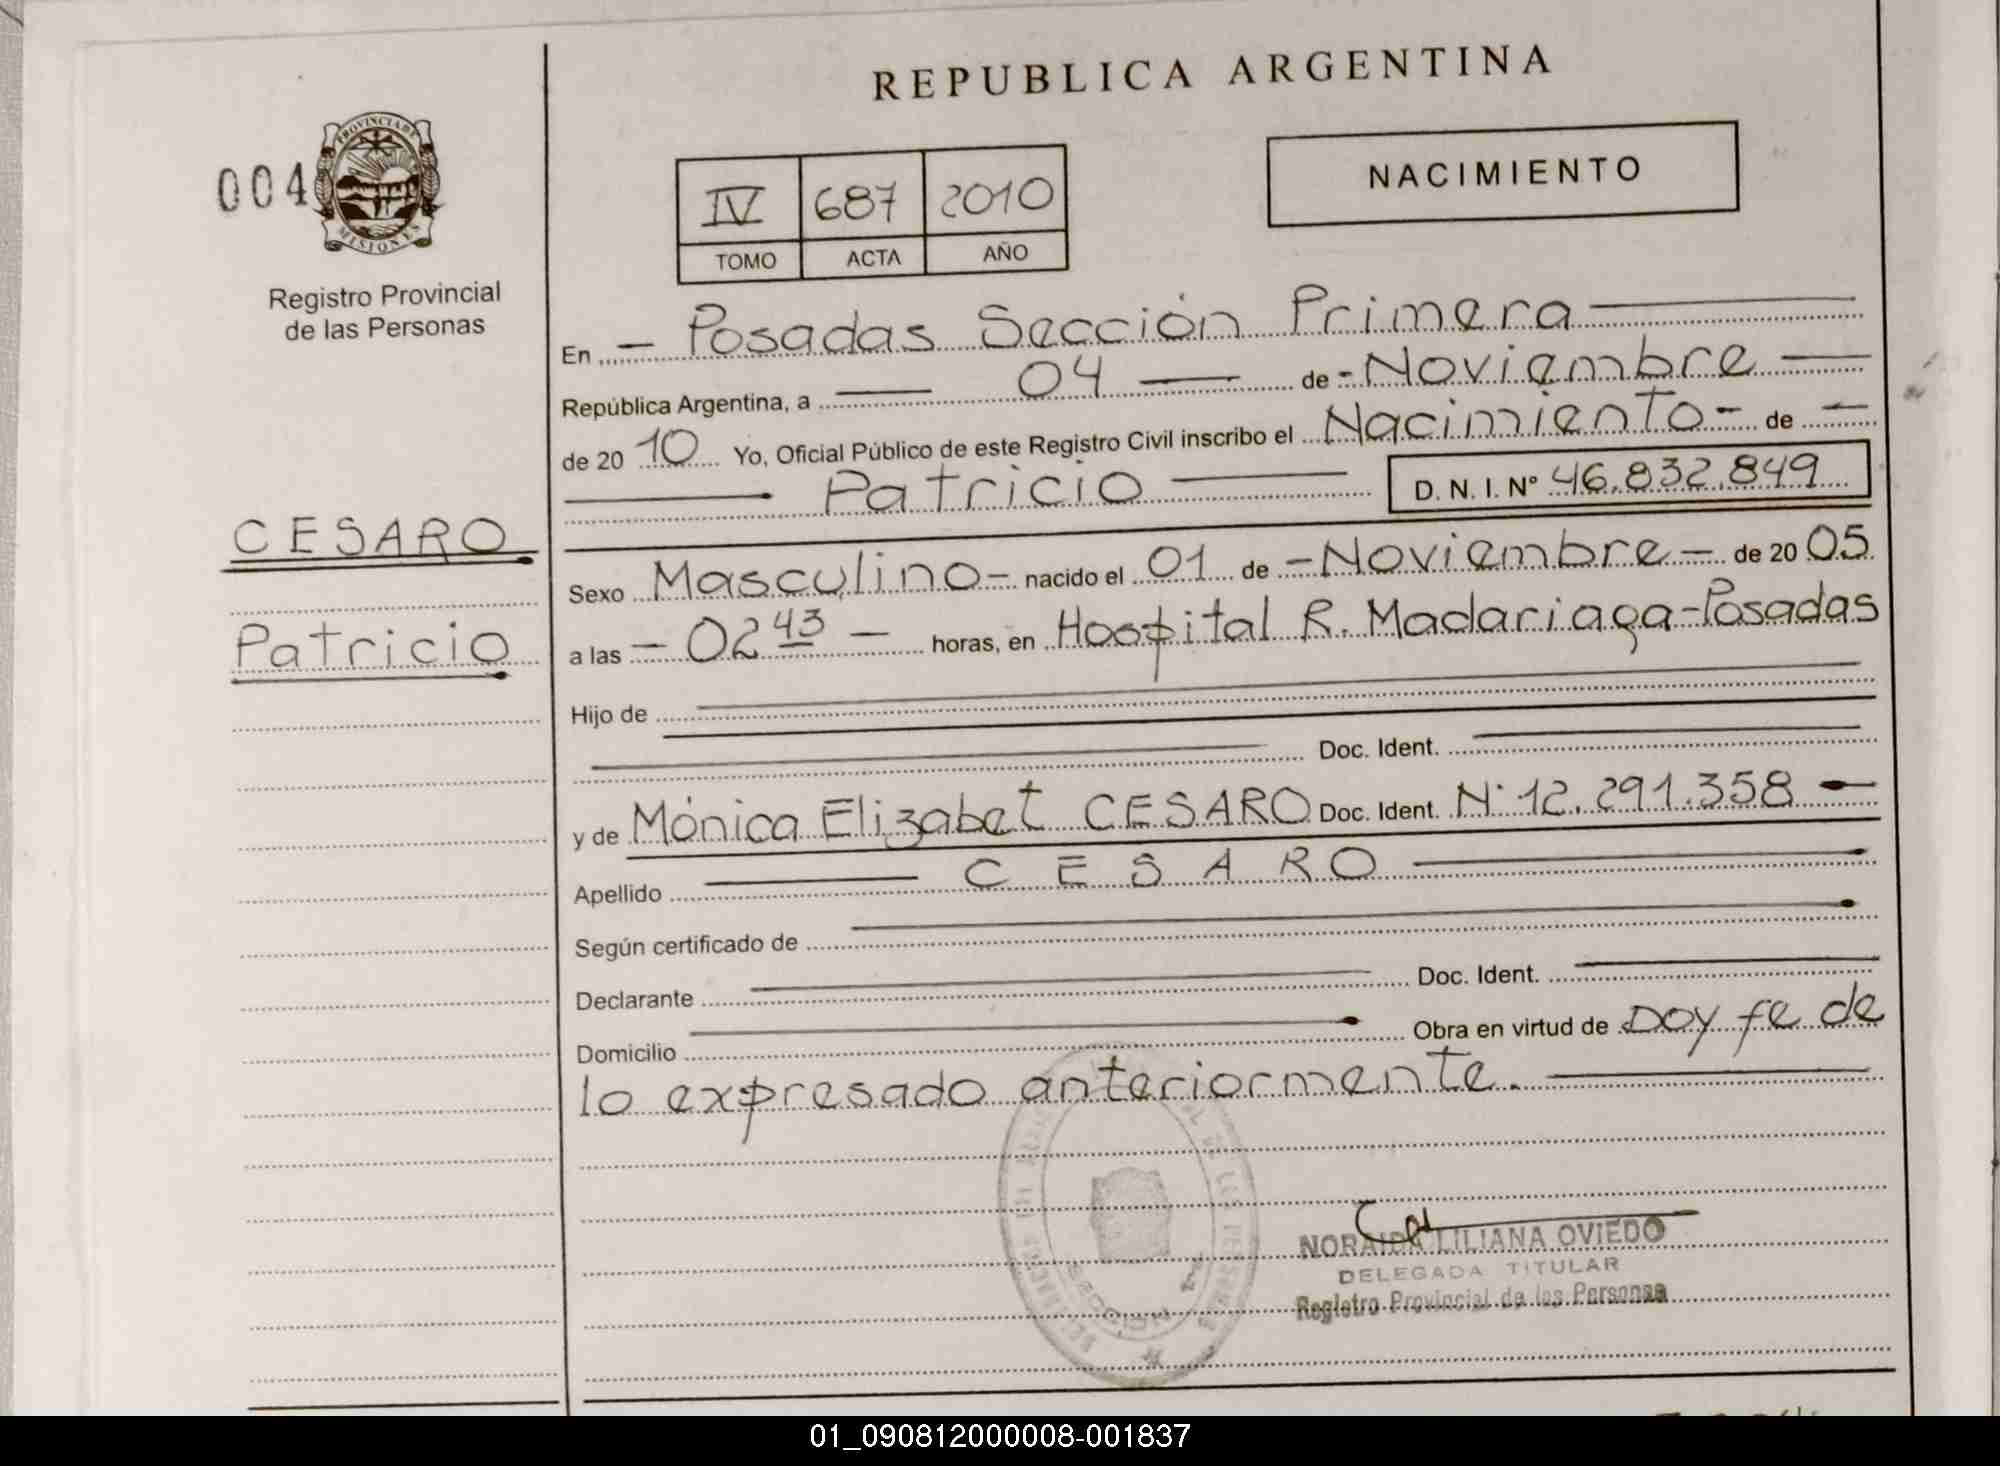 REPUBLICA ARGENTINA
004
PROVINCIA DE
MISIONES
Registro Provincial
de las Personas
IV 687 2010
TOMO ACTA AÑO
NACIMIENTO
En - Posadas Sección Primera
República Argentina, a 04 de - Noviembre
de 20 10 Yo, Oficial Público de este Registro Civil inscribo el Nacimiento - de -
Patricio D. N. I. Nº 46.832.849
CESARO
Patricio
Sexo Masculino - nacido el 01 de - Noviembre - de 20 05
a las - 02 43 - horas, en Hospital R. Madariaga - Posadas
Hijo de
Doc. Ident.
y de Mónica Elizabet CESARO Doc. Ident. N· 12.291.358 -
Apellido CESARO
Según certificado de
Declarante Doc. Ident.
Domicilio Obra en virtud de Doy fe de
lo expresado anteriormente.
NORAIDA LILIANA OVIEDO
DELEGADA TITULAR
Registro Provincial de las Personas
01_090812000008-001837